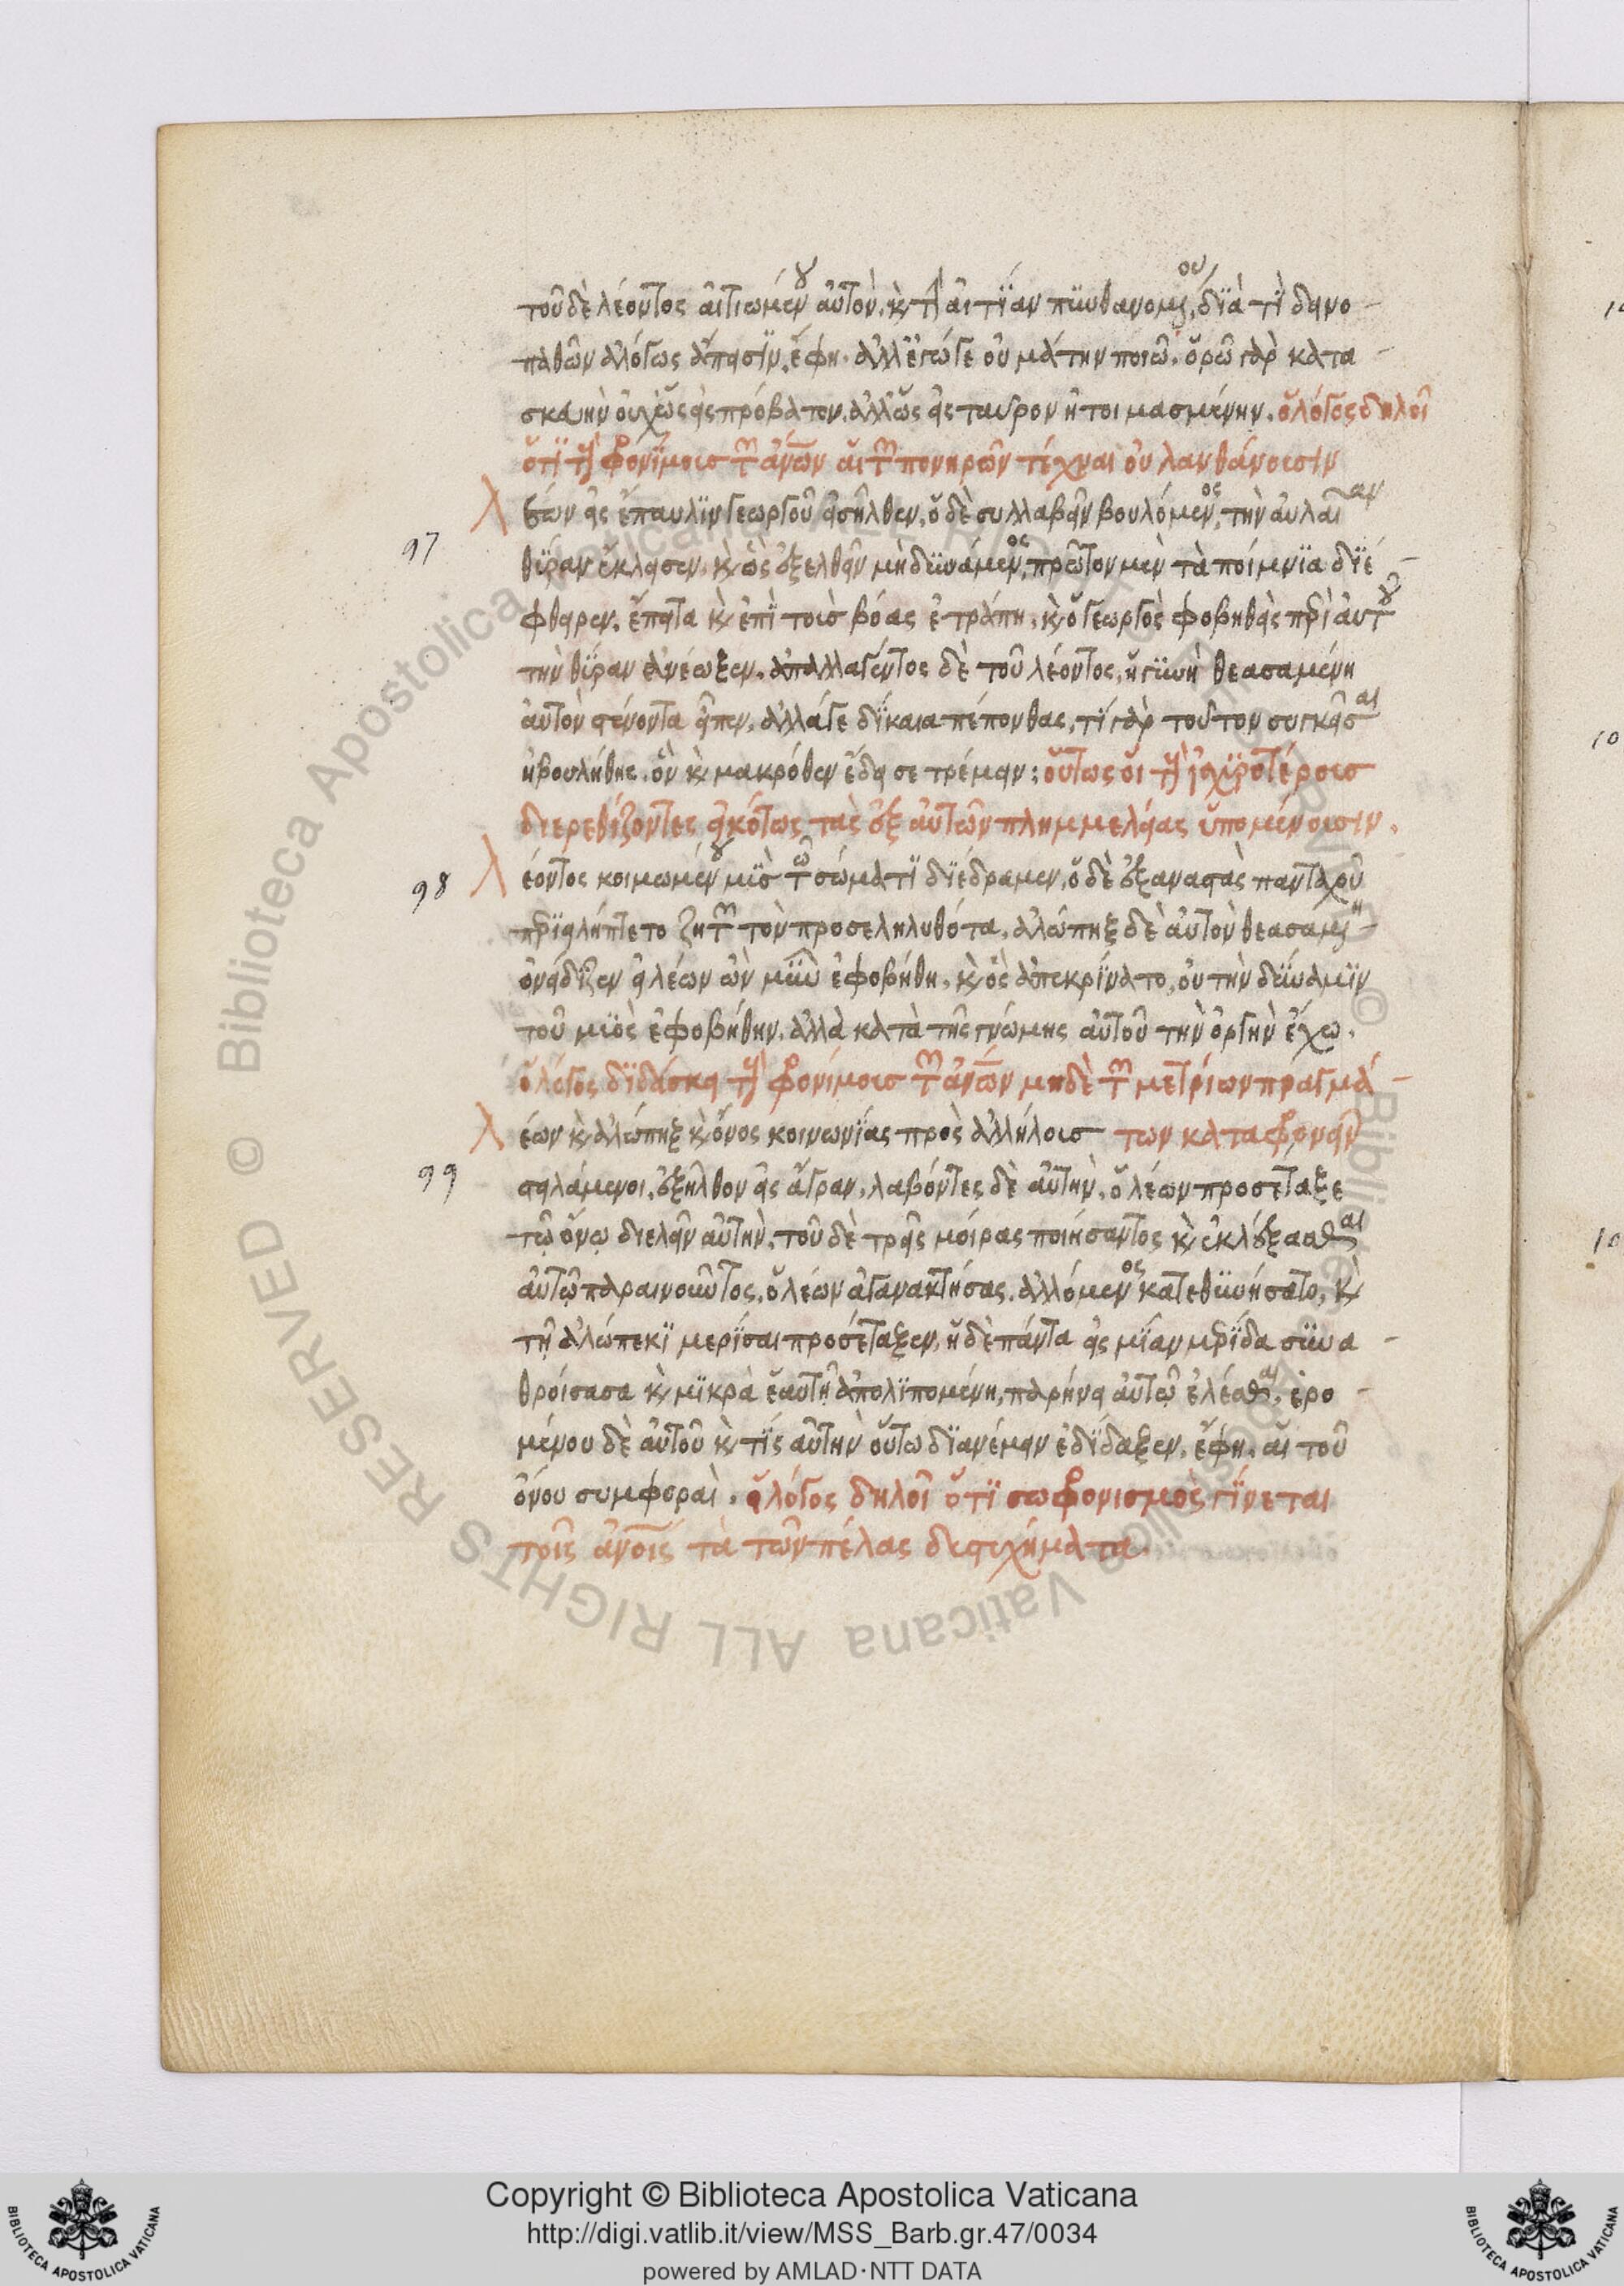 τοῦ δὲ λέοντος αἰτιωμένου αὐτὸν, κ τὴν αἰτΐαν πυνθανομένου, δϊὰ τΐ δεινο-
παθῶν ἀλόγως ἄπεισϊν, ἔφη. ἀλλ' ἔγωγε οὐ μάτην ποιῶ. ὁρῶ γὰρ κατα-
σκευὴν οὐχ ὡς εἰς πρόβατον, ἀλλ' ὡς εἰς ταῦρον ἡτοιμασμένην. ὁ λόγος δηλοῖ
ὅτϊ τοὺς φρονίμους τῶν ἀνων αἱ τῶν πονηρῶν τέχναι οὐ λανθάνουσιν
97
λέων εἰς ἔπαυλϊν γεωργοῦ εἰσῆλθεν, ὁ δὲ συλλαβεῖν βουλόμενος, τὴν αὐλαίαν
θύραν ἔκλεισεν. κ ὃς ἐξελθεῖν μὴ δυνάμενος, πρῶτον μὲν τὰ ποίμνϊα δϊέ-
φθειρεν. ἔπειτα κ ἐπὶ τοὺς βόας ἐτράπη. κ ὁ γεωργὸς φοβηθεὶς περὶ αὐτοῦ
τὴν θύραν ἀνέωξεν. ἀπαλλαγέντος δὲ τοῦ λέοντος, ἡ γυνὴ θεασαμένη
αὐτὸν στένοντα εἶπεν, ἀλλάγε δίκαια πέπονθας, τί γὰρ τοῦτον συγκλεῖσαι
ἠβουλήθης. ὃν κ μακρόθεν ἔδει σε τρέμειν: οὕτως οἱ τοὺς ἰσχυροτέρους
διερεθίζοντες εἰκότως τὰς ἐξ αὐτῶν πλημμελείας ὑπομένουσιν.
98
λέοντος κοιμωμένου μῦς τῶ σώματϊ δϊέδραμεν, ὁ δὲ ἐξαναστὰς πανταχοῦ
περϊειλήπτετο ζητῶν τὸν προσεληλυθότα. ἀλώπηξ δὲ αὐτὸν θεασαμένη
ὀνείδιζεν εἰ λέων ὢν μῦν ἐφοβήθη. κ ὃς ἀπεκρίνατο, οὐ τὴν δύναμϊν
τοῦ μϋὸς ἐφοβήθην. ἀλλὰ κατὰ τῆς γνώμης αὐτοῦ τὴν ὀργὴν ἔχω.
ὁ λόγος δϊδάσκει τοὺς φρονίμους τῶν ἀνων μηδὲ τῶν μετρίων πραγμά-
λέων κ ἀλώπηξ κ ὄνος κοινωνίας πρὸς ἀλλήλους των καταφρονεῖν
99
στειλάμενοι, ἐξῆλθον εἰς ἄγραν, λαβόντες δὲ αὐτὴν. ὁ λέων προσέταξε
τῷ ὄνῳ διελεῖν αὐτὴν. τοῦ δὲ τρεῖς μοίρας ποιήσαντος κ ἐκλέξασθαι
αὐτῷ παραινοῦντος, ὁ λέων ἀγανακτήσας. ἁλλόμενος κατεθϋνήσατο, κ
τῇ ἀλώπεκϊ μερίσαι προσέταξεν. ἡ δὲ πάντα εἰς μίαν μερίδα συνα-
θροίσασα κ μϊκρὰ ἑαυτῇ ἀπολϊπομένη, παρήνει αὐτῷ ἑλέσθαι. ἐρο-
μένου δὲ αὐτοῦ κ τίς αὐτὴν οὕτω δϊανέμειν ἐδίδαξεν, ἔφη. αἱ τοῦ
ὄνου συμφοραὶ. ὁ λόγος δηλοῖ ὅτϊ σωφρονισμὸς γίνεται
τοῖς ἀνοις τὰ τῶν πέλας δυστυχήματα.
© Biblioteca Apostolica Vaticana ALL RIGHTS RESERVED
Copyright © Biblioteca Apostolica Vaticana
http://digi.vatlib.it/view/MSS_Barb.gr.47/0034
powered by AMLAD·NTT DATA
BIBLIOTECA APOSTOLICA VATICANA
BIBLIOTECA APOSTOLICA VATICANA